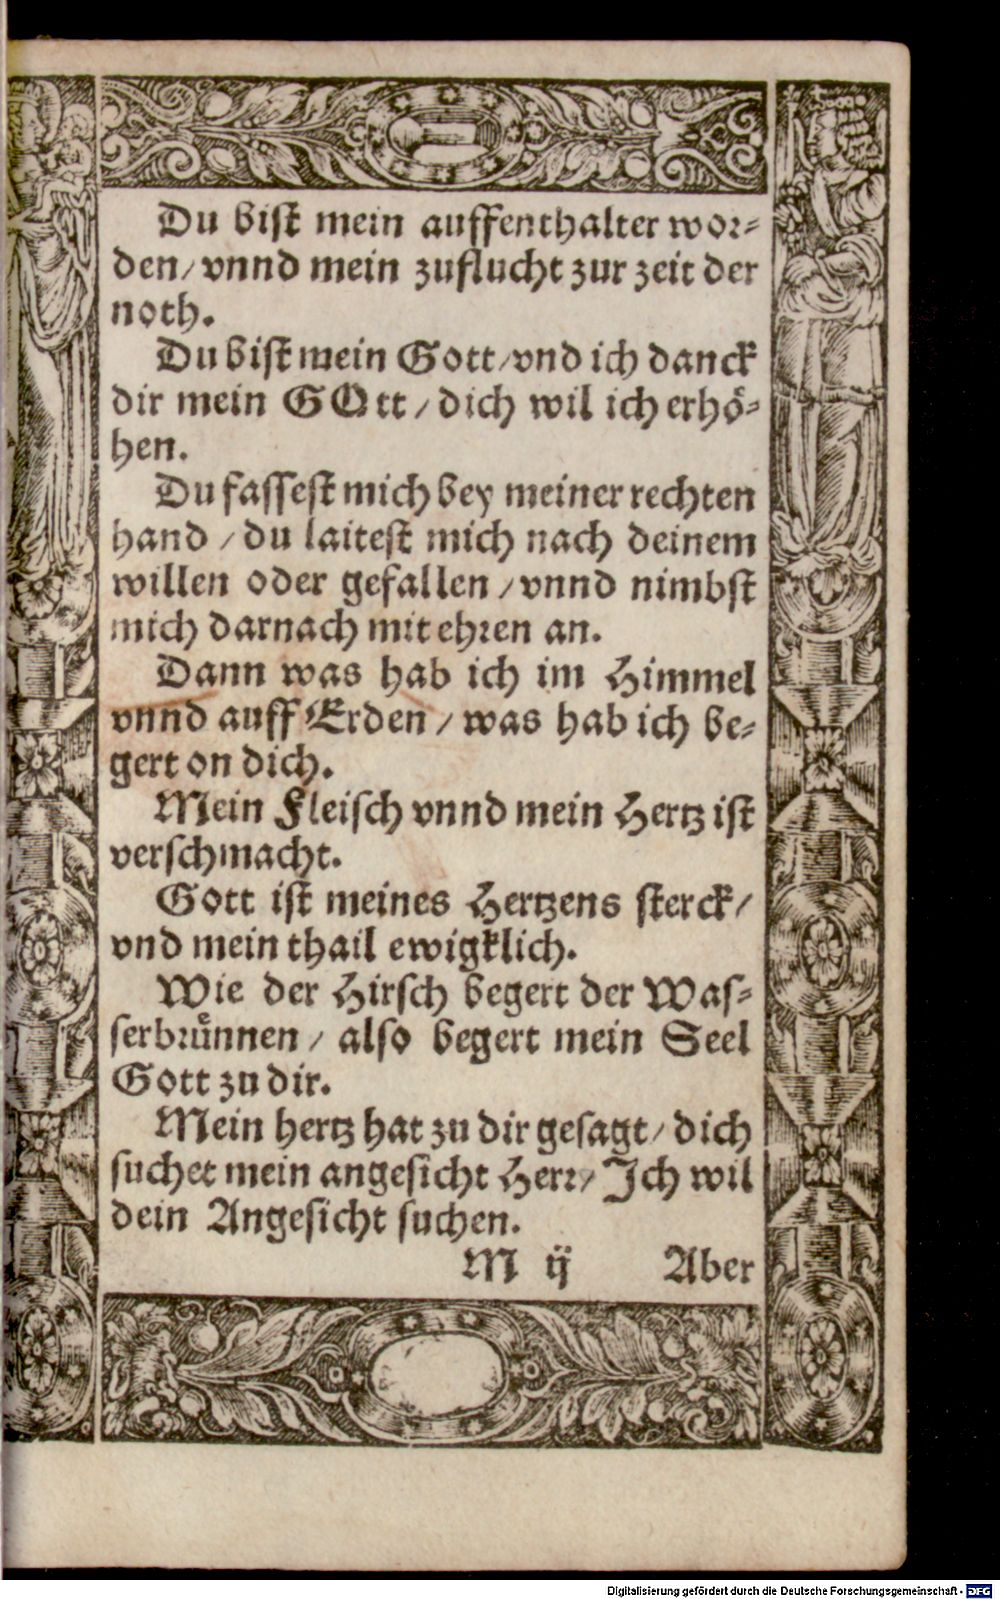 Du bist mein auffenthalter wor⸗
den/ vnnd mein zuflucht zur zeit der
noth.
Du bist mein Gott/ vnd ich danck
dir mein GOtt / dich wil ich erhoͤ⸗
hen.
Du fassest mich bey meiner rechten
hand / du laitest mich nach deinem
willen oder gefallen / vnnd nimbst
mich darnach mit ehren an.
Dann was hab ich im Himmel
vnnd auff Erden / was hab ich be⸗
gert on dich.
Mein Fleisch vnnd mein Hertz ist
verschmacht.
Gott ist meines Hertzens sterck/
vnd mein thail ewigklich.
Wie der Hirsch begert der Was⸗
serbruͤnnen / also begert mein Seel
Gott zu dir.
Mein hertz hat zu dir gesagt/ dich
suchet mein angesicht Herr/ Ich wil
dein Angesicht suchen.
M ij Aber
Digitalisierung gefördert durch die Deutsche Forschungsgemeinschaft - DFG